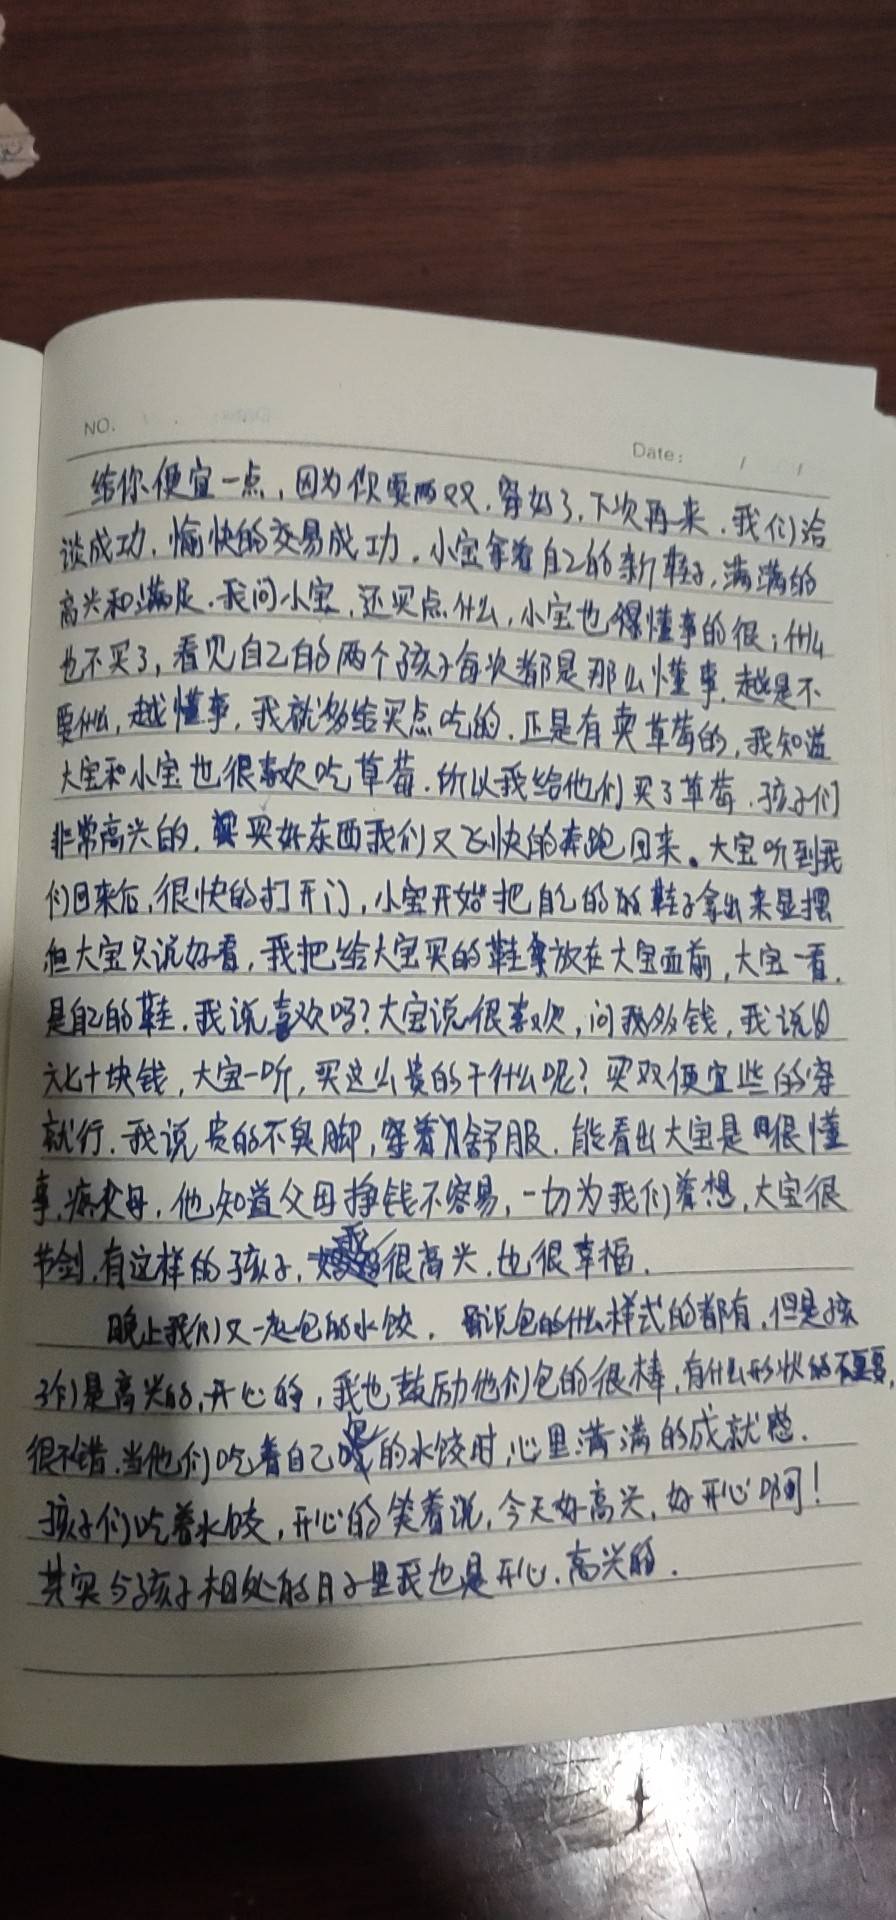 NO.
Date: / /
给你便宜一点,因为你要两双.穿好了,下次再来.我们洽
谈成功,愉快的交易成功.小宝拿着自己的新鞋子,满满的
高兴和满足.我问小宝,还买点什么,小宝也得懂事的很;什么
也不买了,看见自己的两个孩子每次都是那么懂事,越是不
要什么,越懂事,我就多给买点吃的.正是有卖草莓的,我知道
大宝和小宝也很喜欢吃草莓.所以我给他们买了草莓.孩子们
非常高兴的,买好东西我们又飞快的奔跑回来。大宝听到我
们回来后,很快的打开门,小宝开始把自己的鞋子拿出来显摆
但大宝只说好看,我把给大宝买的鞋拿放在大宝面前,大宝一看.
是自己的鞋.我说喜欢吗?大宝说很喜欢,问我多钱,我说
六七十块钱,大宝一听,买这么贵的干什么呢?买双便宜些的穿
就行.我说贵的不臭脚,穿着舒服.能看出大宝是很懂
事.疼父母,他知道父母挣钱不容易,一切为我们着想,大宝很
节剑.有这样的孩子,我很高兴.也很幸福.
晚上我们又一起包的水饺.包的什么样式的都有.但是孩
子们是高兴的,开心的,我也鼓励他们包的很棒,有什么形状的不重要,
很不错.当他们吃着自己包的水饺时,心里满满的成就感.
孩子们吃着水饺,开心的笑着说,今天好高兴,好开心啊!
其实与孩子相处的日子里我也是开心.高兴的.